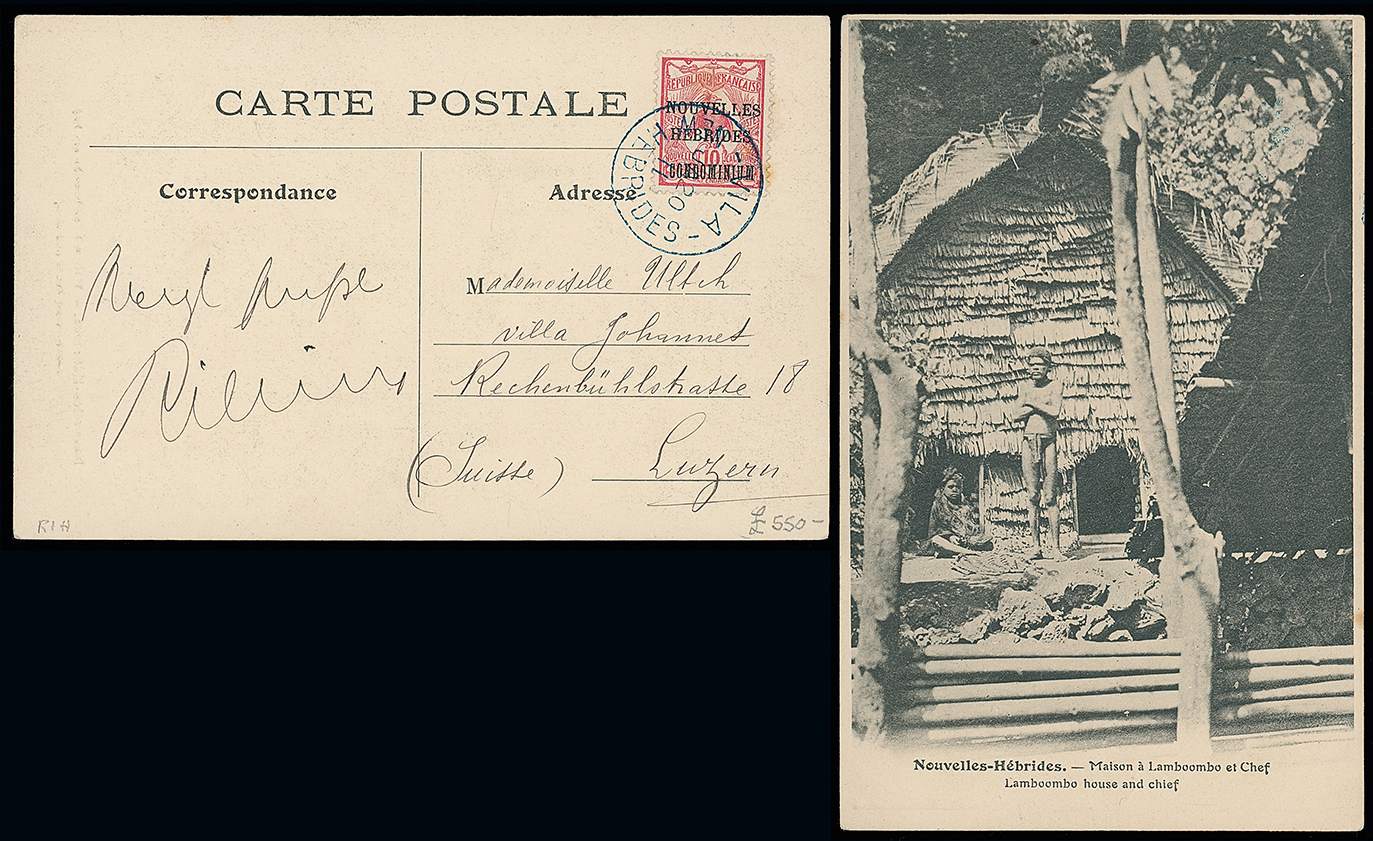 CARTE POSTALE
RÉPUBLIQUE FRANÇAISE
NOUVELLES
HÉBRIDES
10
CONDOMINIUM
VILA
HEBRIDES
Correspondance
Adresse
Mademoiselle Ultsch
villa Johannes
Rechenbühlstrasse 18
(Suisse) Luzern
R1H
£550-
Nouvelles-Hébrides. — Maison à Lamboombo et Chef
Lamboombo house and chief